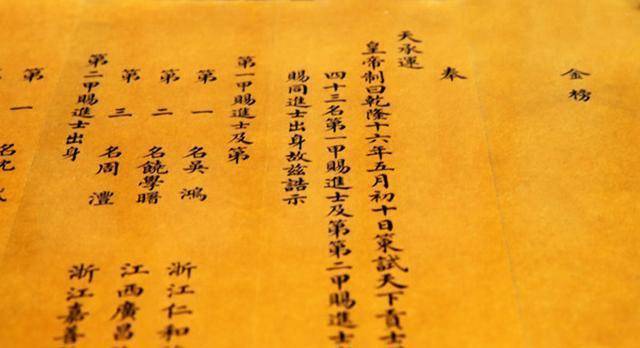 金榜
奉
天承運
皇帝制曰乾隆十六年五月初十日策試天下貢士
四十三名第一甲賜進士及第第二甲賜進士
賜同進士出身故茲誥示
第一甲賜進士及第
第一名吳鴻 浙江仁和
第二名饒學曙 江西廣昌
第三名周澧 浙江嘉善
第二甲賜進士出身
第一名